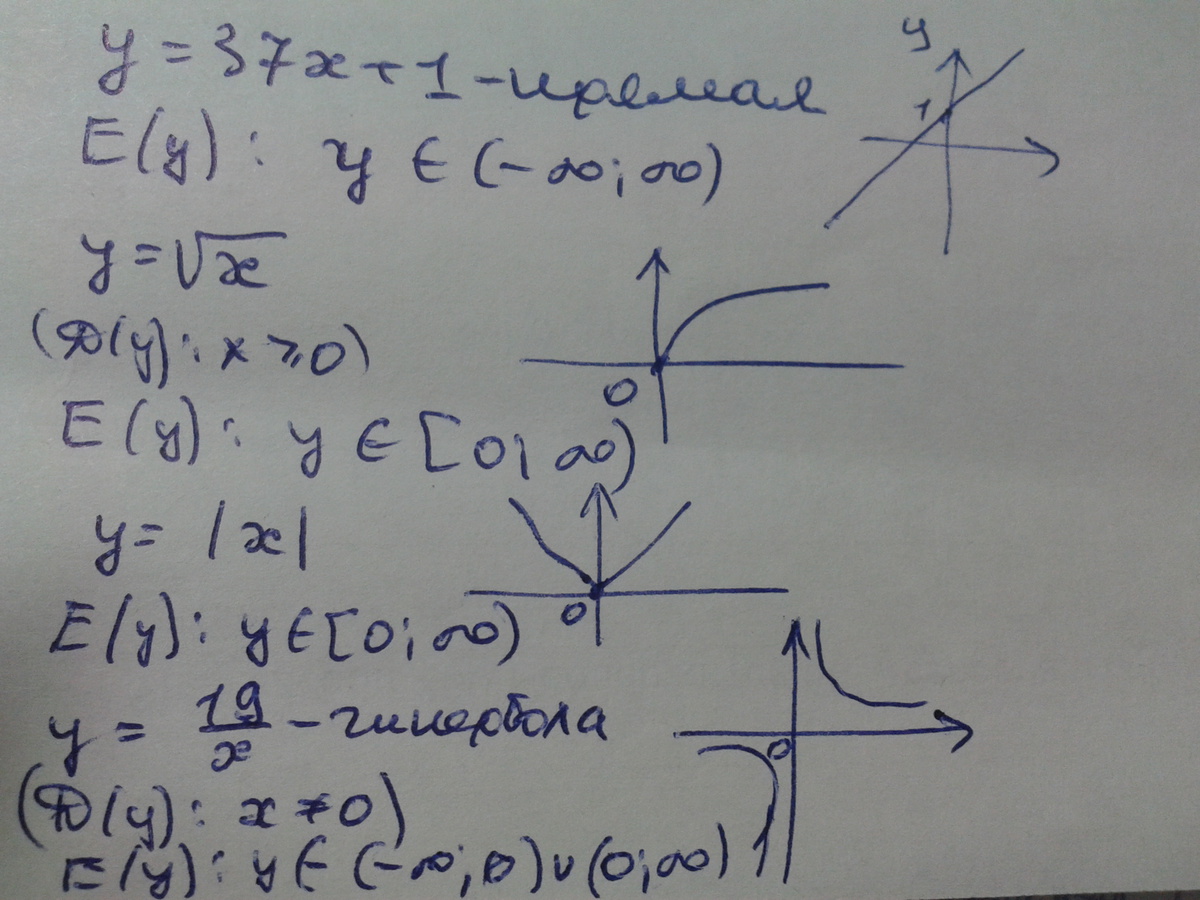 y = 37x + 1 - прямая
E(y): y ∈ (-∞; ∞)
y
1
y = √x
(D(y): x ⩾ 0)
0
E(y): y ∈ [0; ∞)
y = |x|
0
E(y): y ∈ [0; ∞)
y = 19/x - гипербола
0
(D(y): x ≠ 0)
E(y): y ∈ (-∞; 0) ∪ (0; ∞)